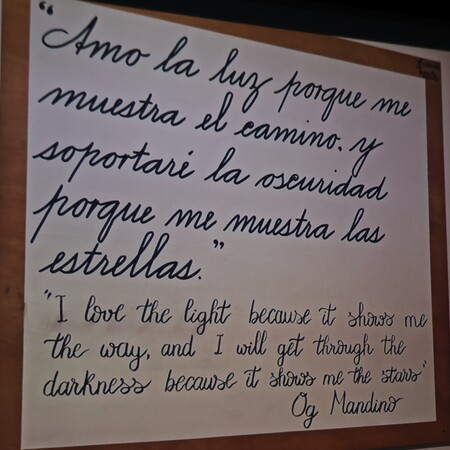 “Amo la luz porque me
muestra el camino. y
soportaré la oscuridad
porque me muestra las
estrellas.”
"I love the light because it shows me
the way, and I will get through the
darkness because it shows me the stars"
Og Mandino